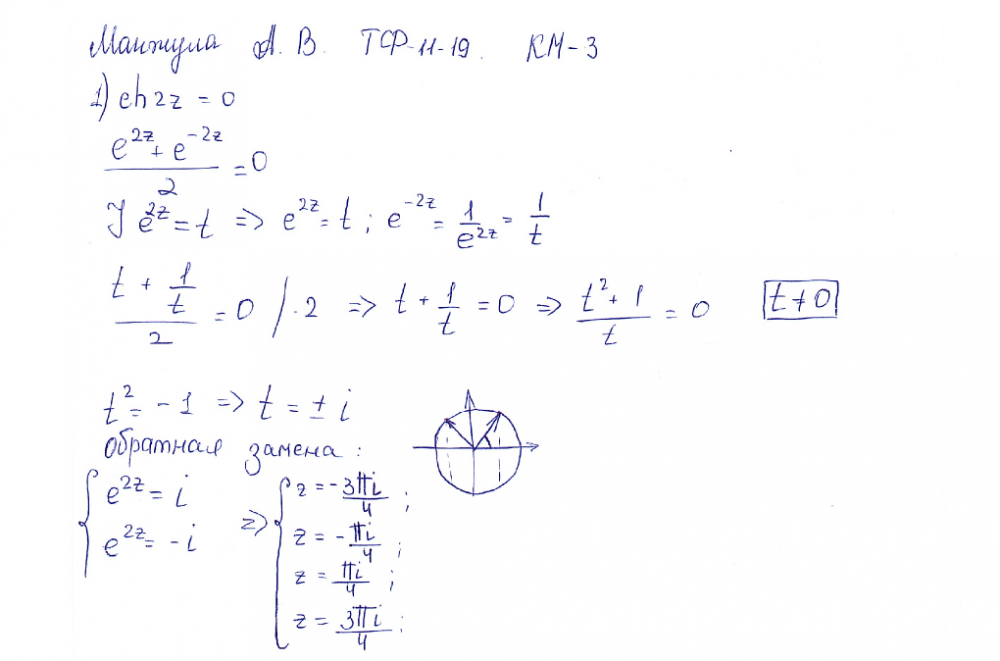 Манжула А. В. ТФ-11-19. КМ-3
1) ch 2z = 0
(e^{2z} + e^{-2z})/2 = 0
] e^{2z} = t => e^{2z} = t ; e^{-2z} = 1/e^{2z} = 1/t
(t + 1/t)/2 = 0 /·2 => t + 1/t = 0 => (t^2 + 1)/t = 0 t ≠ 0
t^2 = -1 => t = ± i
обратная замена :
{ e^{2z} = i
e^{2z} = -i
=> { z = -3πi/4 ;
z = -πi/4 ;
z = πi/4 ;
z = 3πi/4 ;